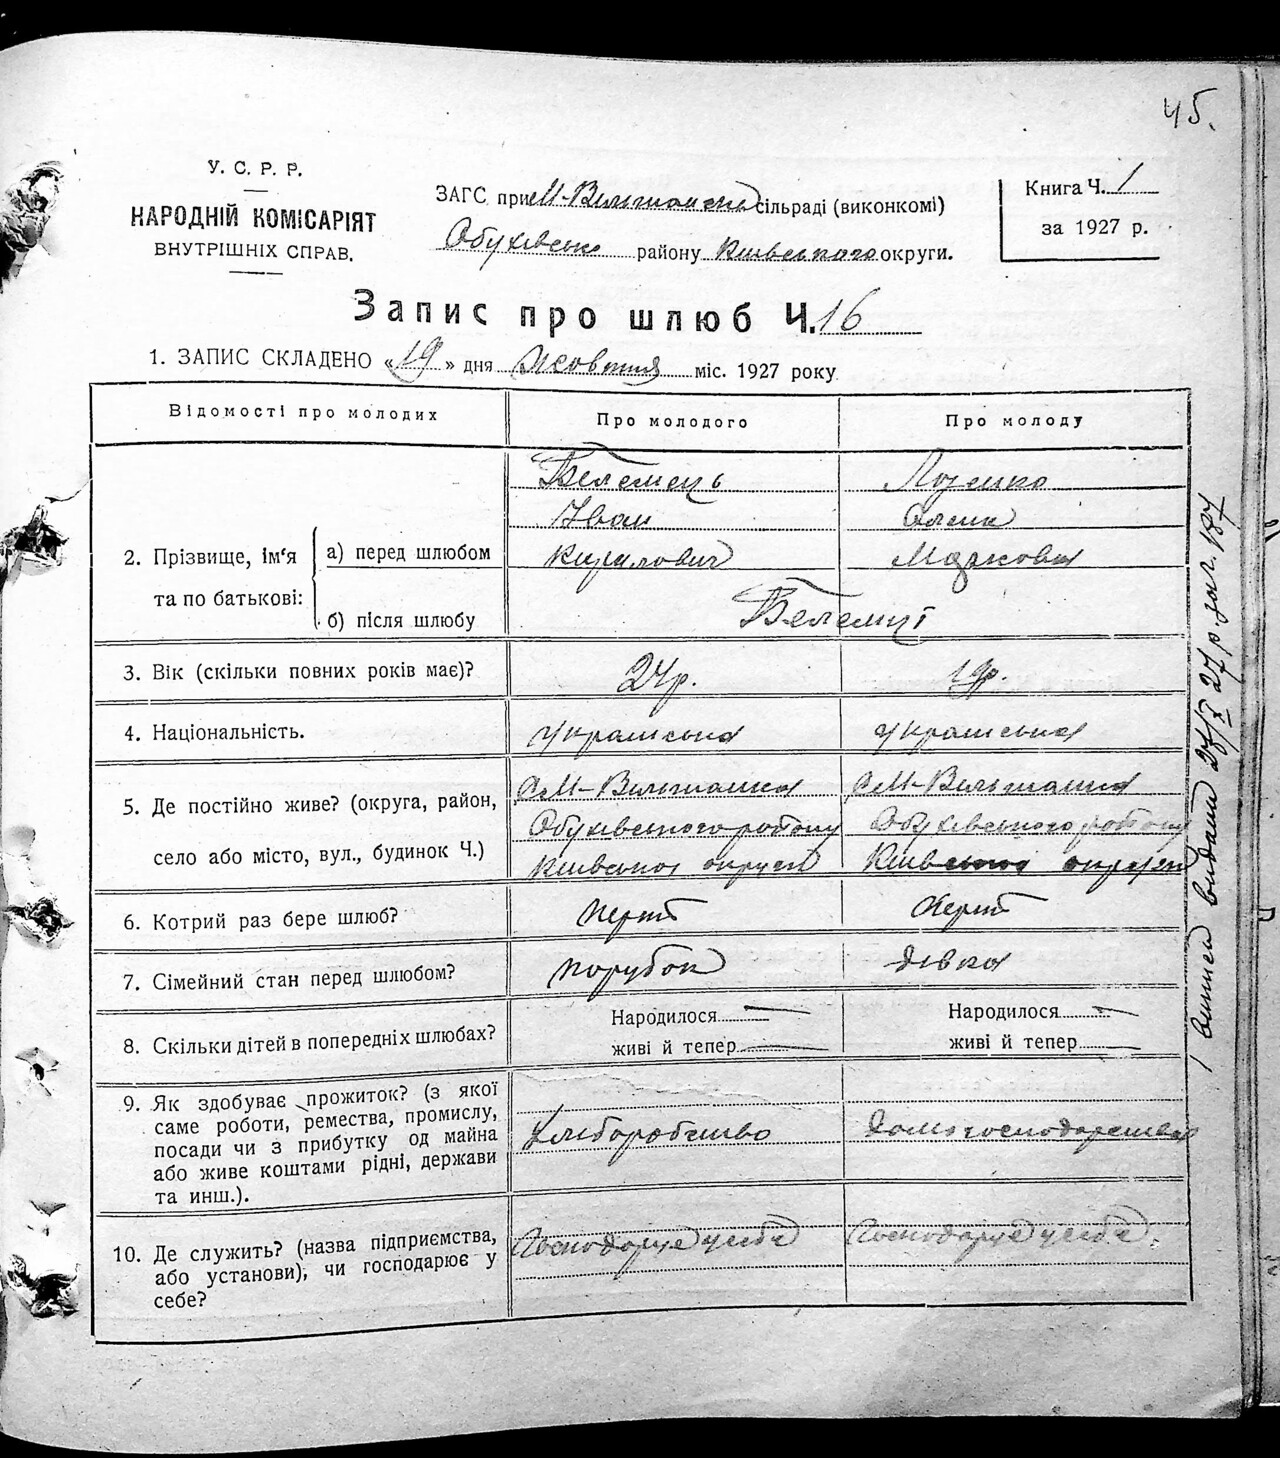 45.
У. С. Р. Р.
НАРОДНІЙ КОМІСАРІЯТ
ВНУТРІШНІХ СПРАВ.
ЗАГС при М-Вільшанськ сільраді (виконкомі)
Обухівськ району Київського округи.
Книга Ч. 1
за 1927 р.
Запис про шлюб Ч. 16
1. ЗАПИС СКЛАДЕНО «19» дня жовтня міс. 1927 року
Відомості про молодих
Про молодого
Про молоду
2. Прізвище, ім'я та по батькові:
а) перед шлюбом
б) після шлюбу
Іван
Кирилович
Маркова
3. Вік (скільки повних років має)?
24р.
19р.
4. Національність.
українська
українська
5. Де постійно живе? (округа, район,
село або місто, вул., будинок Ч.)
с М-Вільшанка
Обухівського району
Київської округи
с М-Вільшанка
Обухівського району
Київської округи
6. Котрий раз бере шлюб?
перший
перший
7. Сімейний стан перед шлюбом?
парубок
дівка
8. Скільки дітей в попередніх шлюбах?
Народилося —
живі й тепер —
Народилося —
живі й тепер —
9. Як здобуває прожиток? (з якої
саме роботи, ремества, промислу,
посади чи з прибутку од майна
або живе коштами рідні, держави
та инш.).
Хліборобство
домогосподарства
10. Де служить? (назва підприємства,
або установи), чи господарює у
себе?
Господарує у себе
Господарує у себе.